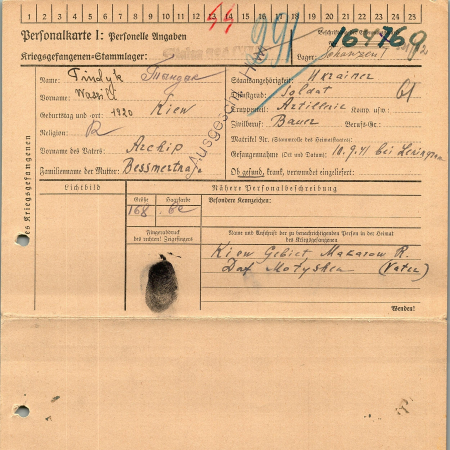 1 2 3 4 5 6 7 8 9 10 11 12 13 14 15 16 17 18 19 20 21 22 23 24 25
44 991
Personalkarte I: Personelle Angaben
Kriegsgefangenen-Stammlager:
Lager:
Name:
Vorname: Wassili
Geburtstag und -ort: 1920 Kiew
Religion: R
Vorname des Vaters: Archip
Familienname der Mutter:
Staatsangehörigkeit: Ukrainer
Dienstgrad: Soldat
Truppenteil: Artillerie Komp. usw.:
Zivilberuf: Bauer Berufs-Gr.:
Matrikel Nr. (Stammrolle des Heimatstaates):
Gefangennahme (Ort und Datum): 10.9.41 bei
Ob gesund, krank, verwundet eingeliefert:
des Kriegsgefangenen
Lichtbild
Nähere Personalbeschreibung
Größe Haarfarbe
168
Besondere Kennzeichen:
Fingerabdruck
des rechten! Zeigefingers
Name und Anschrift der zu benachrichtigenden Person in der Heimat
des Kriegsgefangenen
Kiew Gebiet Makarow R.
Dorf Motyshen (Vater)
Wenden!